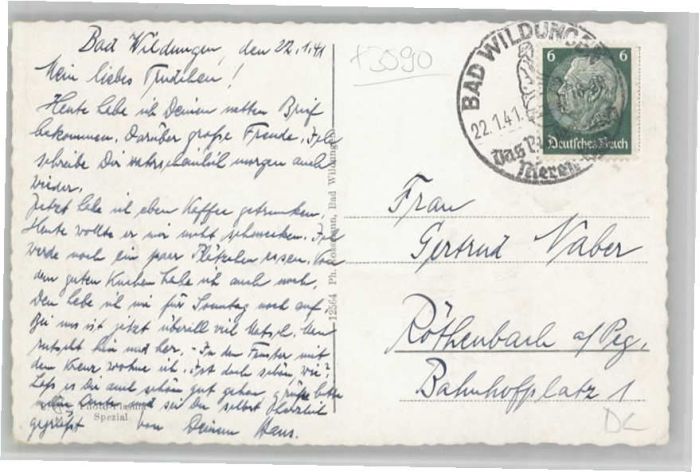 Bad Wildungen, den 22.1.41
Mein liebes Trudchen!
Heute habe ich Deinen netten Brief
bekommen. Darüber große Freude. Ich
schreibe Dir wahrscheinlich morgen auch
wieder.
Jetzt habe ich eben Kaffee getrunken.
Heute wollte er mir nicht schmecken. Ich
werde noch ein paar Plätzchen essen. Von
dem guten Kuchen habe ich auch noch.
Den habe ich mir für Sonntag noch auf.
Bei uns ist jetzt überall viel Matsch. Man
rutscht hin und her. - In dem Fenster mit
dem Kreuz wohne ich. Ist doch schön, wie?
Laß es dir auch schön gut gehen, grüße bitte
und sei du selbst herzlich
gegrüßt von Deinem Hans.
Spezial
12564 Ph. Bad Wildungen
+3090
BAD WILDUNGEN
22.1.41
Das
Nieren
6 6
Deutsches Reich
Frau
Gertrud Naber
Röthenbach a/Peg.
Bahnhofplatz 1
DC